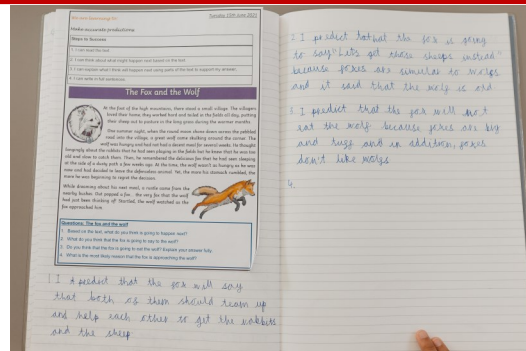 Tuesday 15th June 2021
Make accurate predictions
Steps to Success
1. I can read the text.
2. I can think about what might happen next based on the text.
3. I can explain what I think will happen next using parts of the text to support my answer.
4. I can write in full sentences.
The Fox and the Wolf
At the foot of the high mountains, there stood a small village. The villagers
loved their home; they worked hard and toiled in the fields all day, putting
their sheep out to pasture in the long grass during the warmer months.
One summer night, when the round moon shone down across the pebbled
road into the village, a great wolf came skulking around the corner. The
wolf was hungry and had not had a decent meal for several weeks. He thought
longingly about the rabbits that he had seen playing in the fields but he knew that he was too
old and slow to catch them. Then, he remembered the delicious fox that he had seen sleeping
at the side of a dusty path a few weeks ago. At the time, the wolf wasn't as hungry as he was
now and had decided to leave the defenceless animal. Yet, the more his stomach rumbled, the
more he was beginning to regret the decision.
While dreaming about his next meal, a rustle came from the
nearby bushes. Out popped a fox - the very fox that the wolf
had just been thinking of! Startled, the wolf watched as the
fox approached him.
Questions: The fox and the wolf
1. Based on the text, what do you think is going to happen next?
2. What do you think that the fox is going to say to the wolf?
3. Do you think that the fox is going to eat the wolf? Explain your answer fully.
4. What is the most likely reason that the fox is approaching the wolf?
1. I predict that the fox will say
that both of them should team up
and help each other to get the rabbits
and the sheep
2. I predict that the fox is going
to say "Let's get those sheeps instead"
because foxes are simular to wolfs
and it said that the wolf is old
3. I predict that the fox will not
eat the wolf because foxes are big
and tuff and in addition, foxes
don't like wolfs
4.